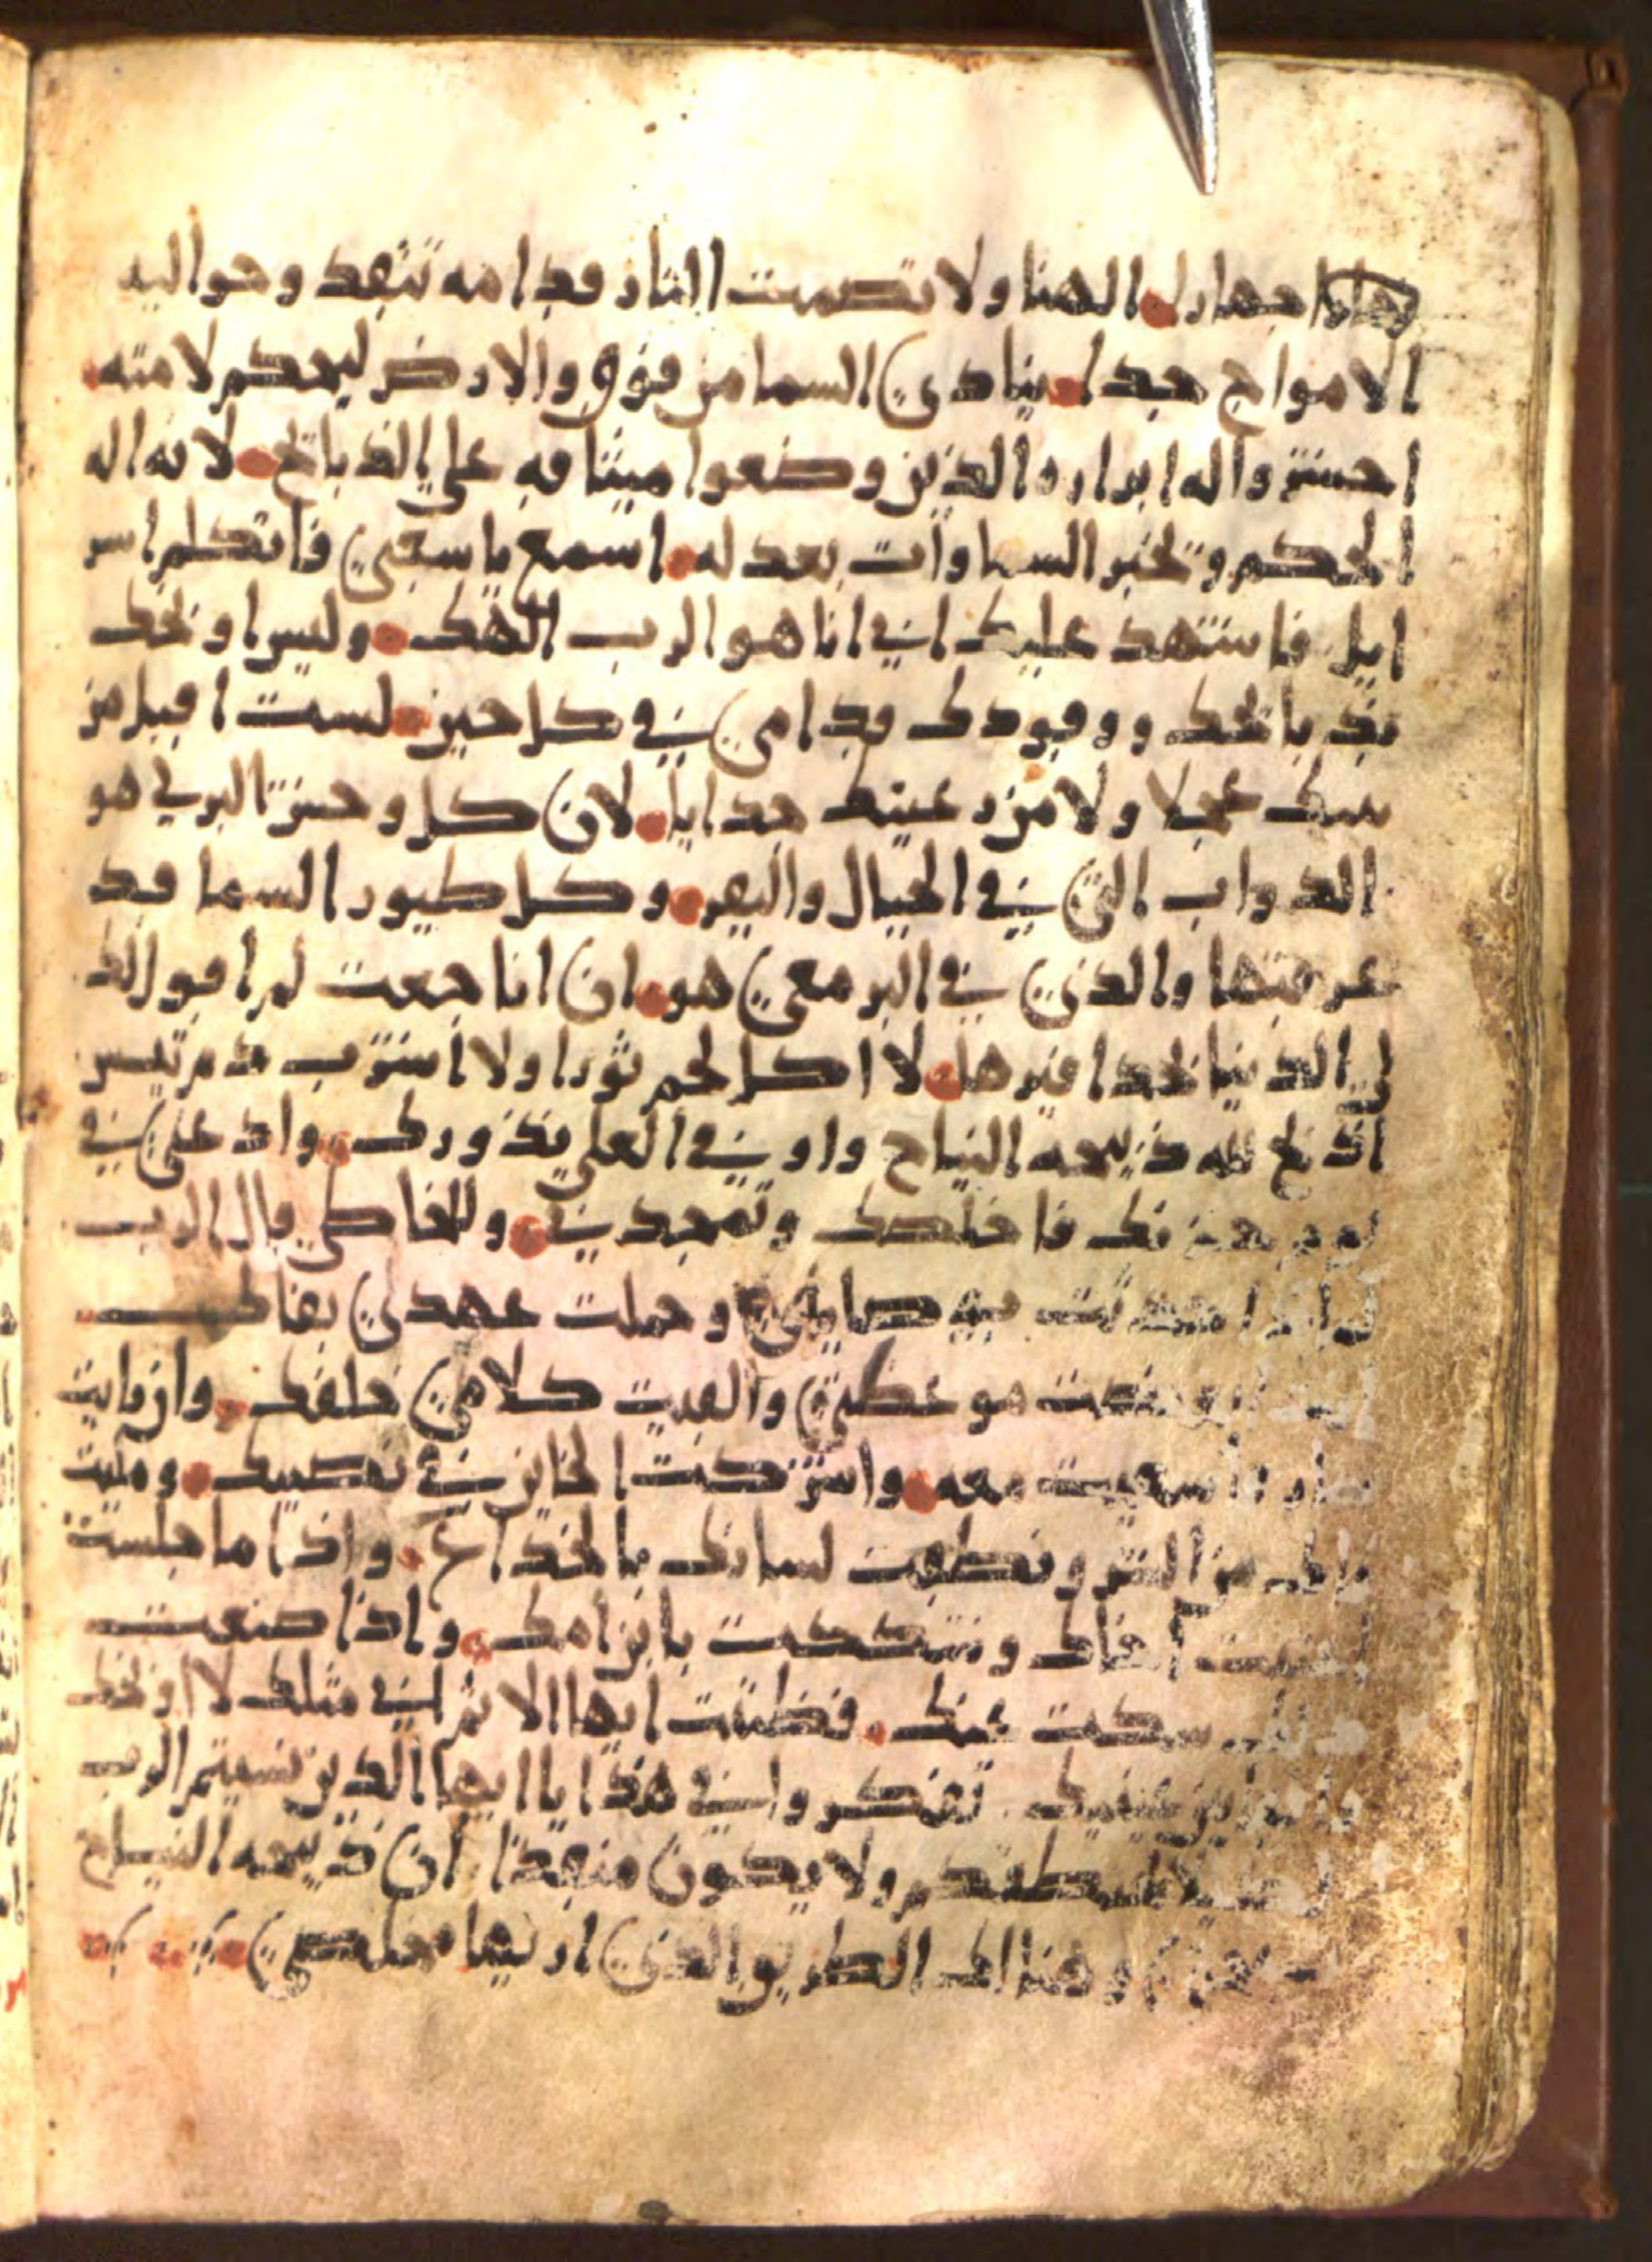 جهارا الهنا ولا تصمت النار قدامه تتقد وحواليه
الامواج جدا ينادي السما من فوق والارض ليحكم لامته
احشر واله ابراره الذين وضعوا ميثاقه على الذبائح لانه اله
الحكم وتخبر السماوات بعدله اسمع يا شعبي فاتكلم اسر
ايل فاشهد عليك اني انا هو الرب الهك وليس اوبخك
بذبائحك ووقودك قدامي في كل حين لست اقبل من
بيتك عجلا ولا من رعيتك جدايا لان كل وحش البر لي هو
الدواب التي في الجبال والبقر وكل طيور السما قد
عرفتها والذي في البر معي هو ان انا جعت لم اقول لك
لي الدنيا بحدافيرها لا اكل لحم ثورا ولا اشرب دم تيس
اذبح لله ذبيحه النياح واوفي العلي نذورك وادعني في
يوم حزنك فاخلصك وتمجدني وللخاطي قال الرب
وصايتي وحملت عهدي بفاك
موعظتي والقيت كلامي خلفك وان رايت
سعيت معه واشركت الخاين في نصيبك ومليت
فاك من الشر ونطقت لسانك بالخداع واذا ما جلست
اخاك وشككت بابن امك واذا صنعت
سكت عنك فظننت ايها الاثم اني مثلك لا اوبخك
عينيك تفكروا في هذا يا ايها الذين نسيتم الرب
يخطفكم ولا يكون منقذا ان ذبيحه النياح
وهناك الطريق الذي اريها خلاصي